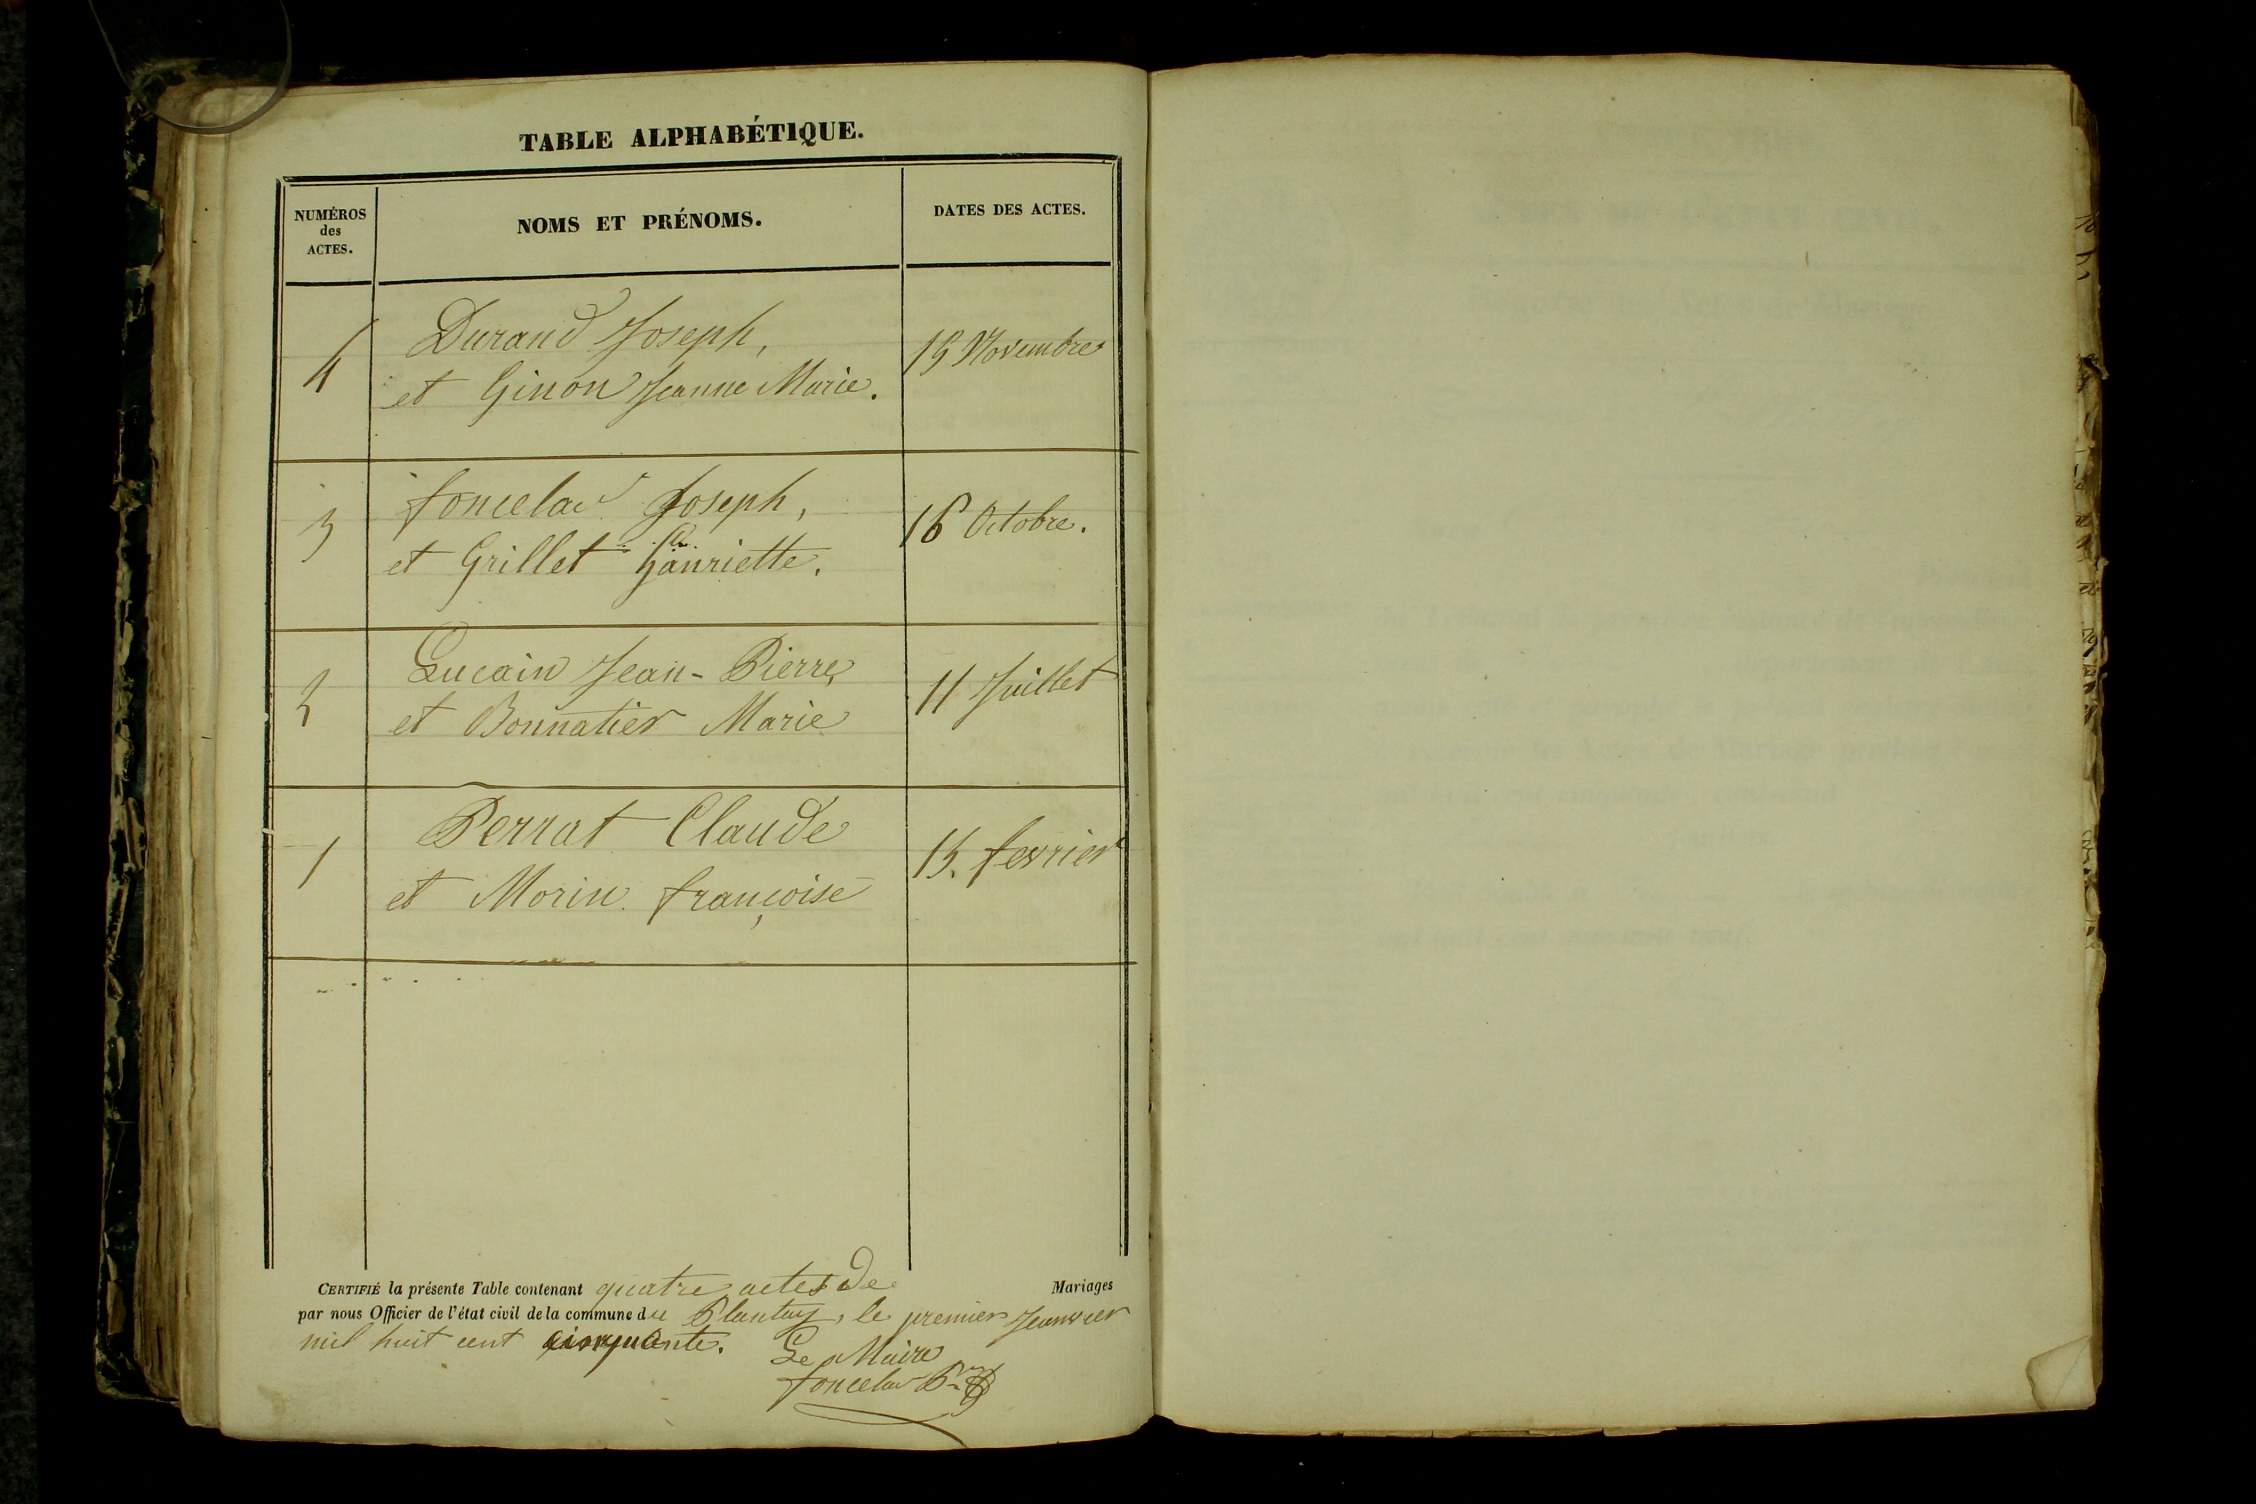 TABLE ALPHABÉTIQUE.
NUMÉROS
des
ACTES.
NOMS ET PRÉNOMS.
DATES DES ACTES.
4
Durand Joseph,
et Ginon Jeanne Marie.
15 Novembre
3
foncelas Joseph,
et Grillet Hanriette.
16 Octobre.
2
Lucain Jean-Pierre,
et Bonnatier Marie
11 Juillet
1
Perrat Claude
et Morin françoise
15. fevrier
CERTIFIÉ la présente Table contenant quatre actes de Mariages
par nous Officier de l'état civil de la commune du Plantay, le premier Jeanvier
mil huit cent cinquante.
Le Maire
foncelas